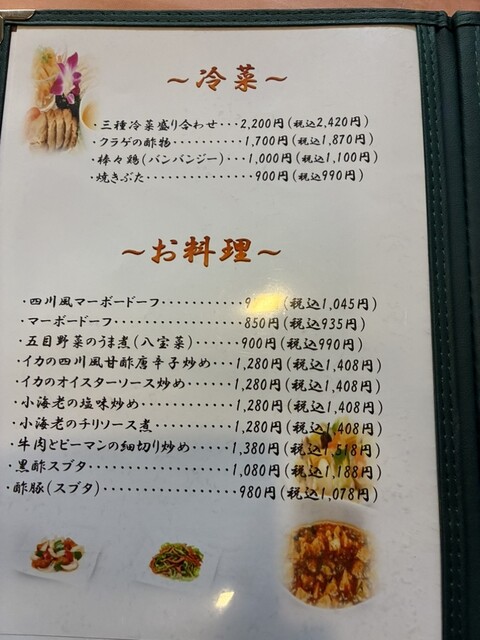 ～冷菜～
・三種冷菜盛り合わせ・・・2,200円(税込2,420円)
・クラゲの酢物・・・・・・・・・・1,700円(税込1,870円)
・棒々鶏(バンバンジー)・・・1,000円(税込1,100円)
・焼きぶた・・・・・・・・・・・・・・・900円(税込990円)
～お料理～
・四川風マーボードーフ・・・・・・・・・・(税込1,045円)
・マーボードーフ・・・・・・・・・・・・・・・850円(税込935円)
・五目野菜のうま煮(八宝菜)・・・・・・900円(税込990円)
・イカの四川風甘酢唐辛子炒め・・・1,280円(税込1,408円)
・イカのオイスターソース炒め・・・・・1,280円(税込1,408円)
・小海老の塩味炒め・・・・・・・・・・1,280円(税込1,408円)
・小海老のチリソース煮・・・・・・・・・1,280円(税込1,408円)
・牛肉とピーマンの細切り炒め・・・・1,380円(税込1,518円)
・黒酢スブタ・・・・・・・・・・・・・・・・・1,080円(税込1,188円)
・酢豚(スブタ)・・・・・・・・・・・・・・・980円(税込1,078円)